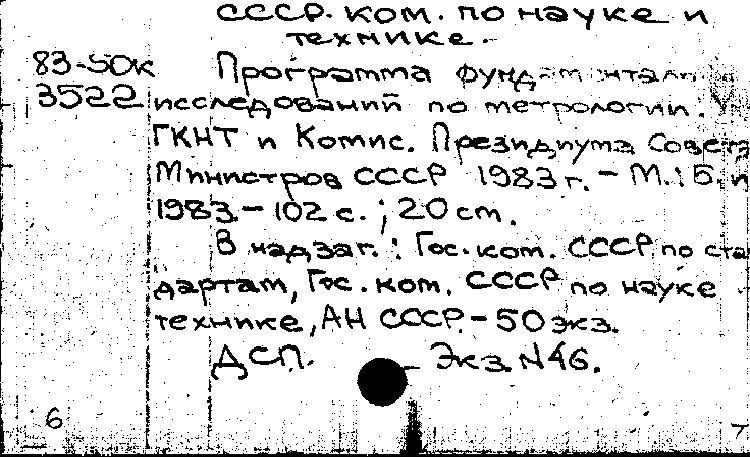 СССР. ком. по науке и
технике.-
83-50к Программа
3522 исследований по метрологии.
ГКНТ и Комис. Президиума Совета
Министров СССР 1983г. - М.: Б. и
1983.- 102 с. ; 20 cm.
В надзаг.: Гос. ком. СССР по ста
дартам, Гос. ком. СССР по науке
технике, АН СССР.- 50 экз.
ДСП. - Экз. N46.
6
7